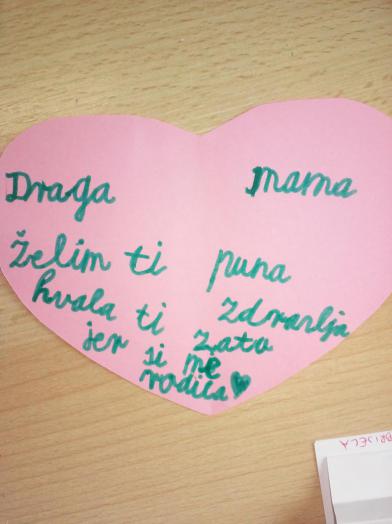 Draga mama
želim ti puna
hvala ti zdravlja
jer zato
si me
rodila
BRIJEČA